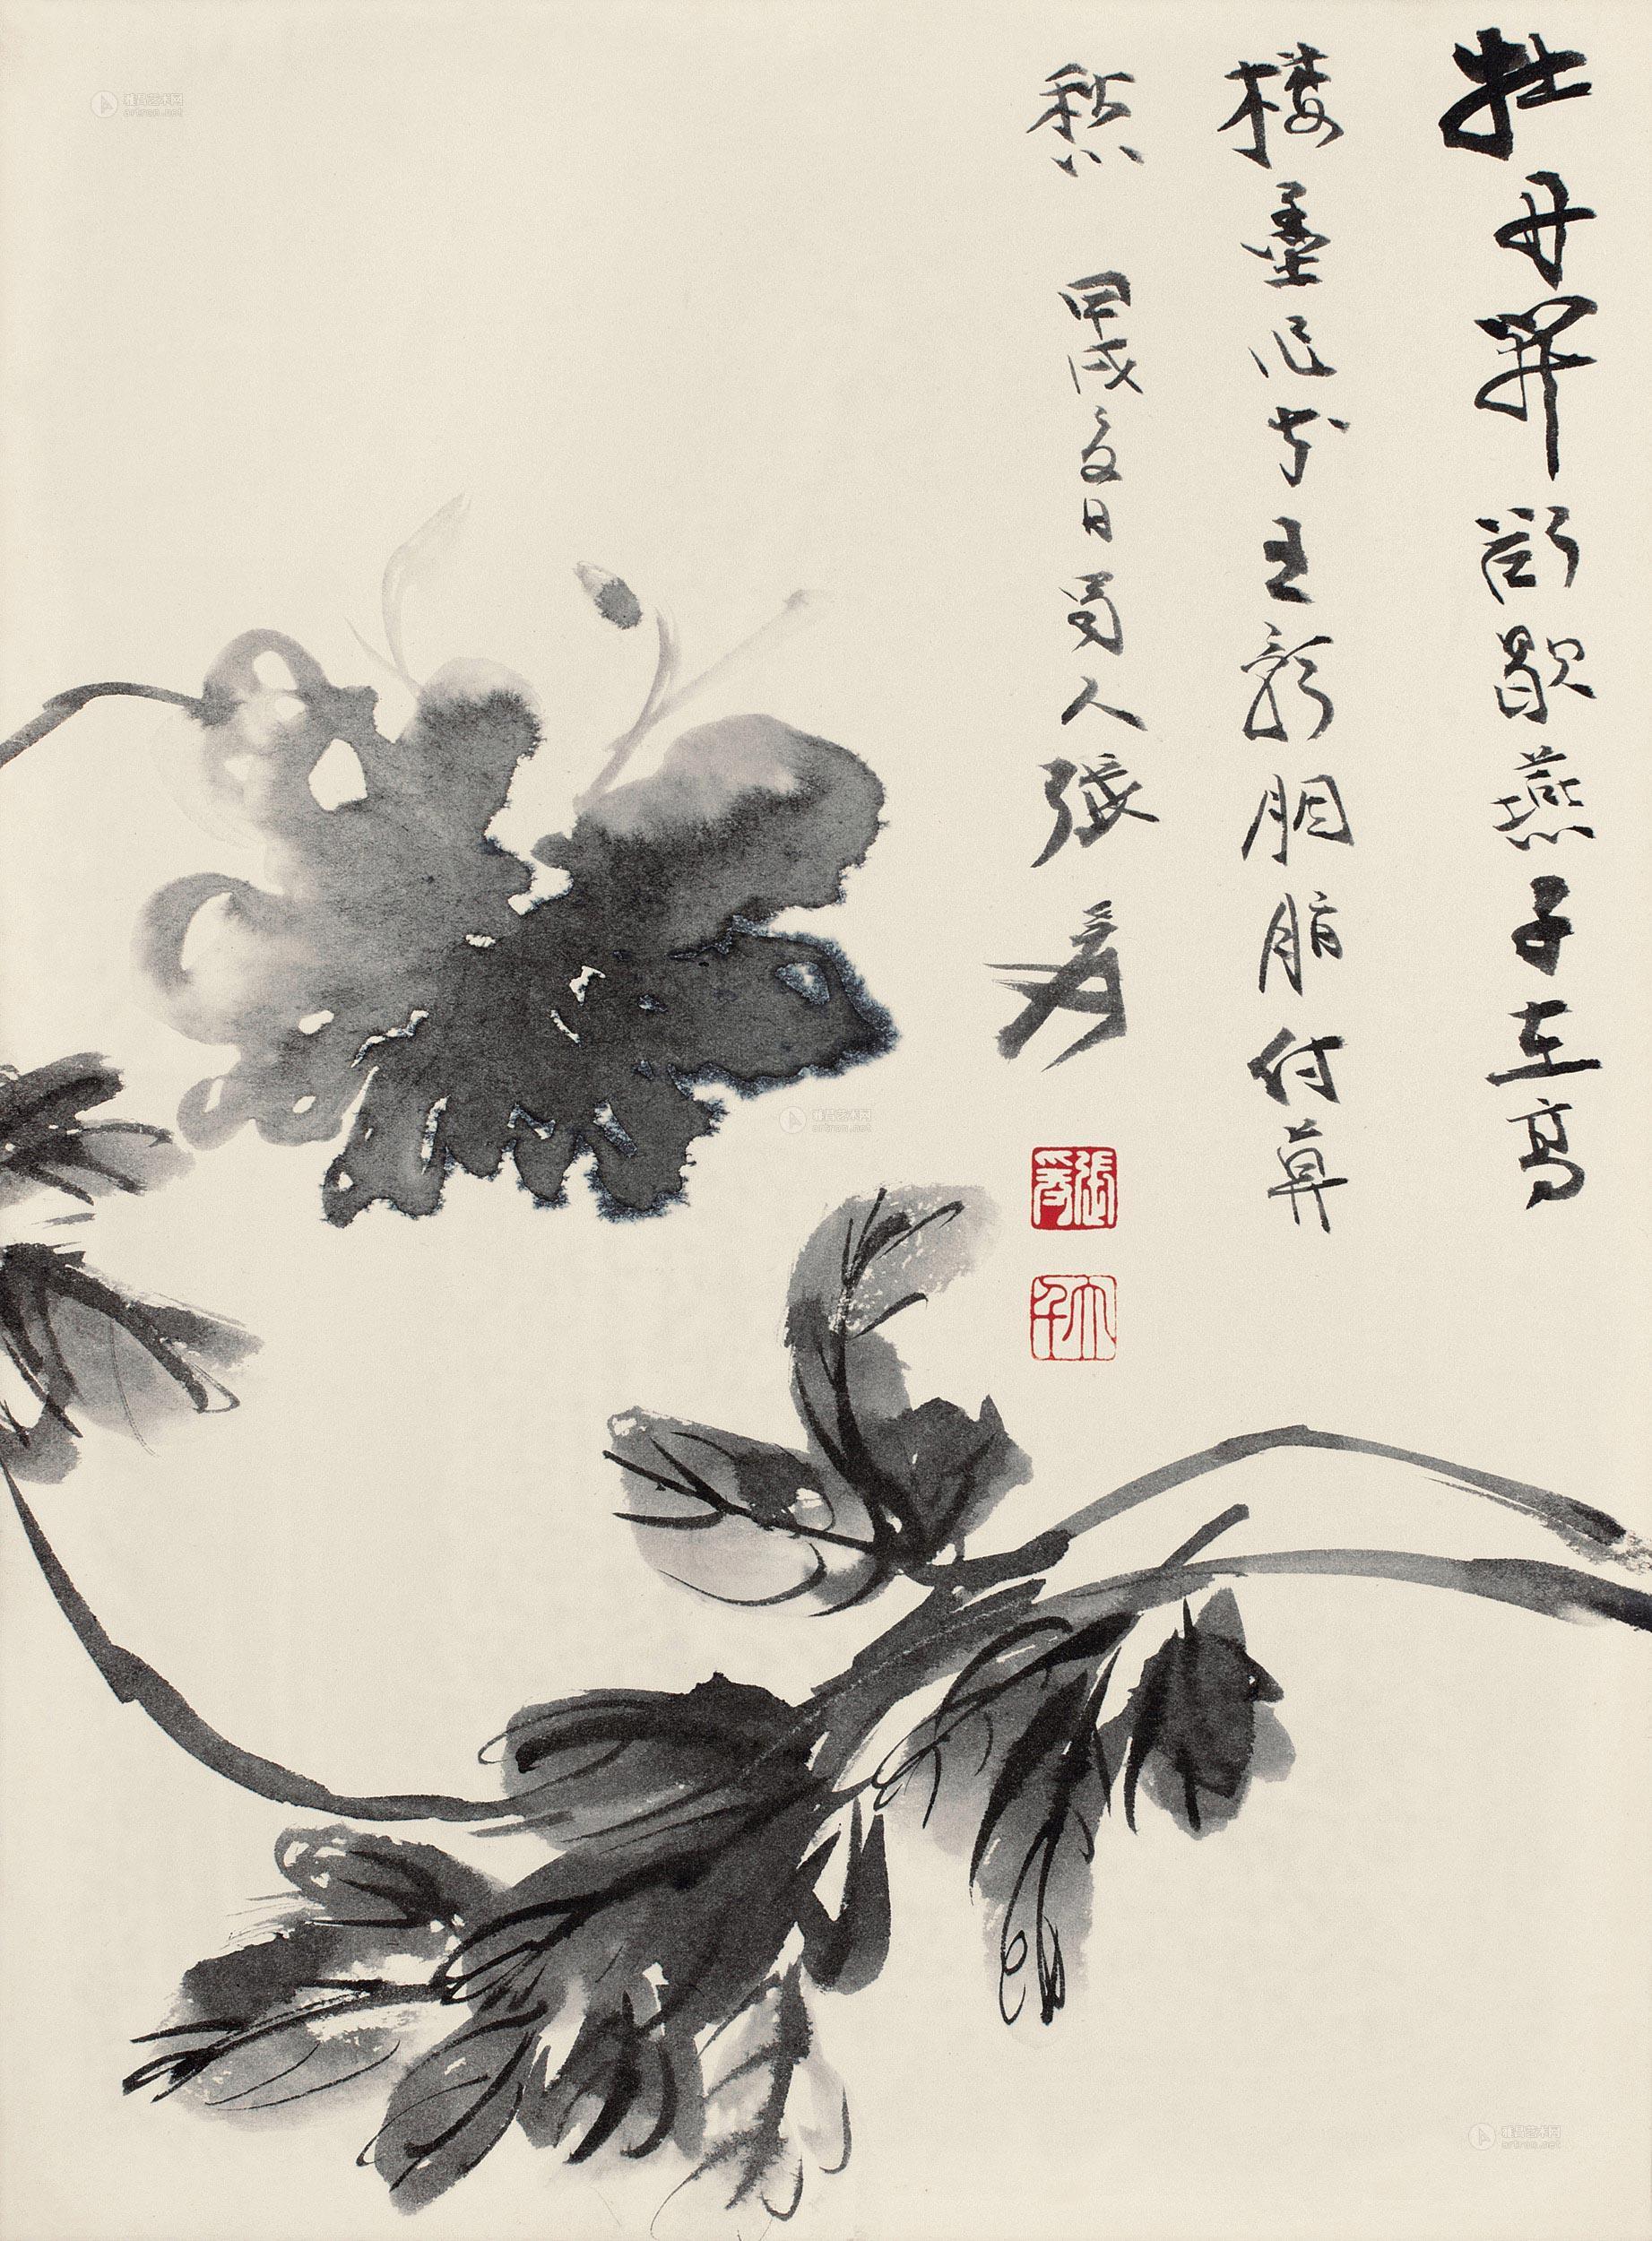 牡丹開欲歇燕子在高
楼墨作花王影胭脂付莫
愁 甲戌夏日蜀人張爰
張爰
大千
雅昌艺术网
artron.net
雅昌艺术网
artron.net
雅昌艺术网
artron.net